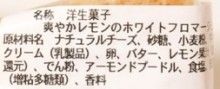 名称 洋生菓子
爽やかレモンのホワイトフロマー
原材料名 ナチュラルチーズ、砂糖、小麦粉
クリーム（乳製品）、卵、バター、レモン果
還元）、でん粉、アーモンドプードル、食塩
（増粘多糖類）、香料